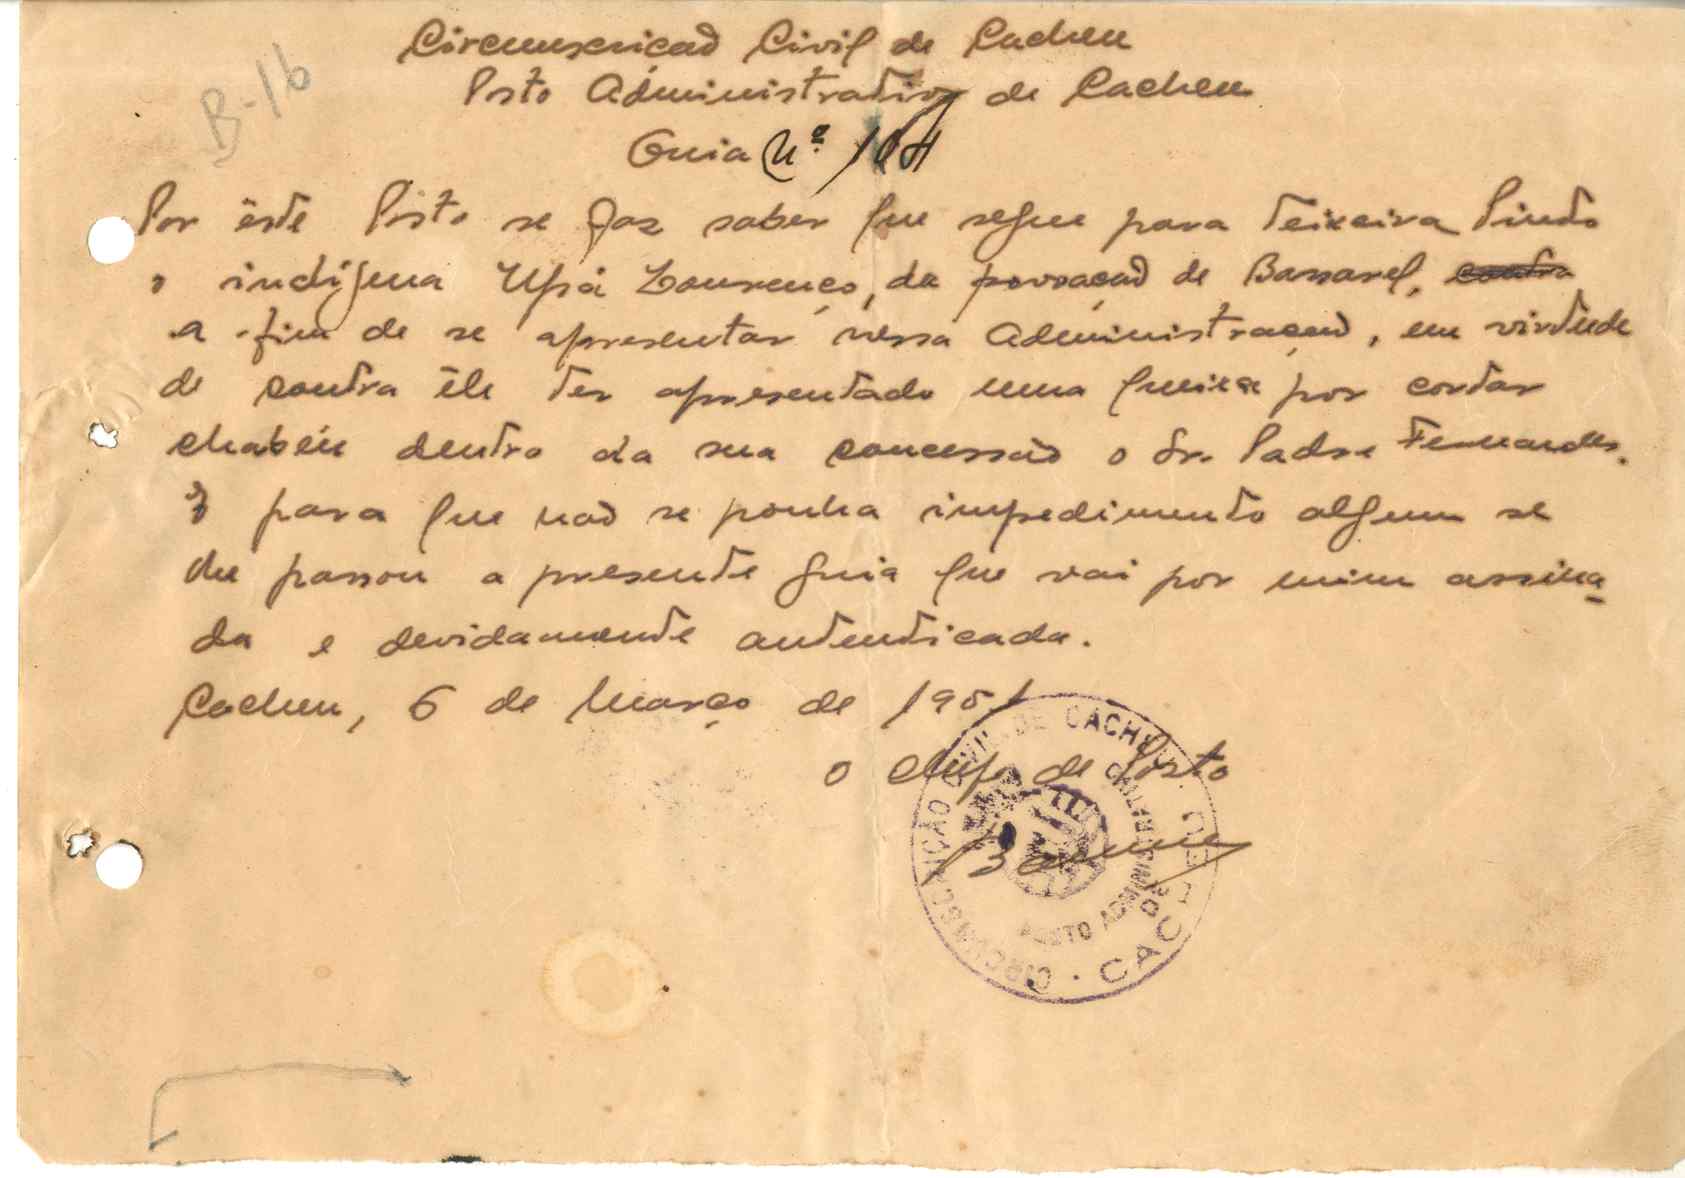 B-16
Circunscrição Civil de Cacheu
Posto Administrativo de Cacheu
Guia Nº
Por êste Posto se faz saber que segue para Teixeira Pinto
o indígena Upá Lourenço, da povoação de Bassarel, contra
a fim de se apresentar nessa Administração, em virtude
de contra êle ter apresentado uma queixa por cortar
chabéu dentro da sua concessão o Sr. Padre Fernandes.
E para que não se ponha impedimento algum se
lhe passou a presente guia que vai por mim assina-
da e devidamente autenticada.
Cacheu, 6 de Março de 1951
O Chefe de Posto
CIRCUNSCRIÇÃO CIVIL DE CACHEU · CACHEU
POSTO ADMINISTRATIVO